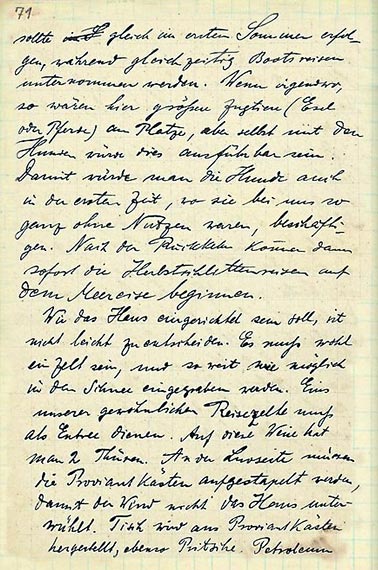 71
sollte gleich im ersten Sommer erfol-
gen, während gleichzeitig Bootsreisen
unternommen werden. Wenn irgendwo,
so wären hier größere Zugtiere (Esel
oder Pferde) am Platze, aber selbst mit den
Hunden würde dies ausführbar sein.
Damit würde man die Hunde auch
in der ersten Zeit, wo sie bei uns so
ganz ohne Nutzen waren, beschäfti-
gen. Nach der Rückkehr können dann
sofort die Herbstschlittenreisen auf
dem Meereise beginnen.
Wie das Haus eingerichtet sein soll, ist
nicht leicht zu entscheiden. Es muß wohl
ein Zelt sein, und so weit wie möglich
in den Schnee eingegraben werden. Eins
unserer gewöhnlichen Reisezelte muß
als Entree dienen. Auf diese Weise hat
man 2 Thüren. An der Luvseite müssen
die Proviantkästen aufgestapelt werden,
damit der Wind nicht das Haus unter-
wühlt. Tisch wird aus Proviantkästen
hergestellt, ebenso Pritsche. Petroleum